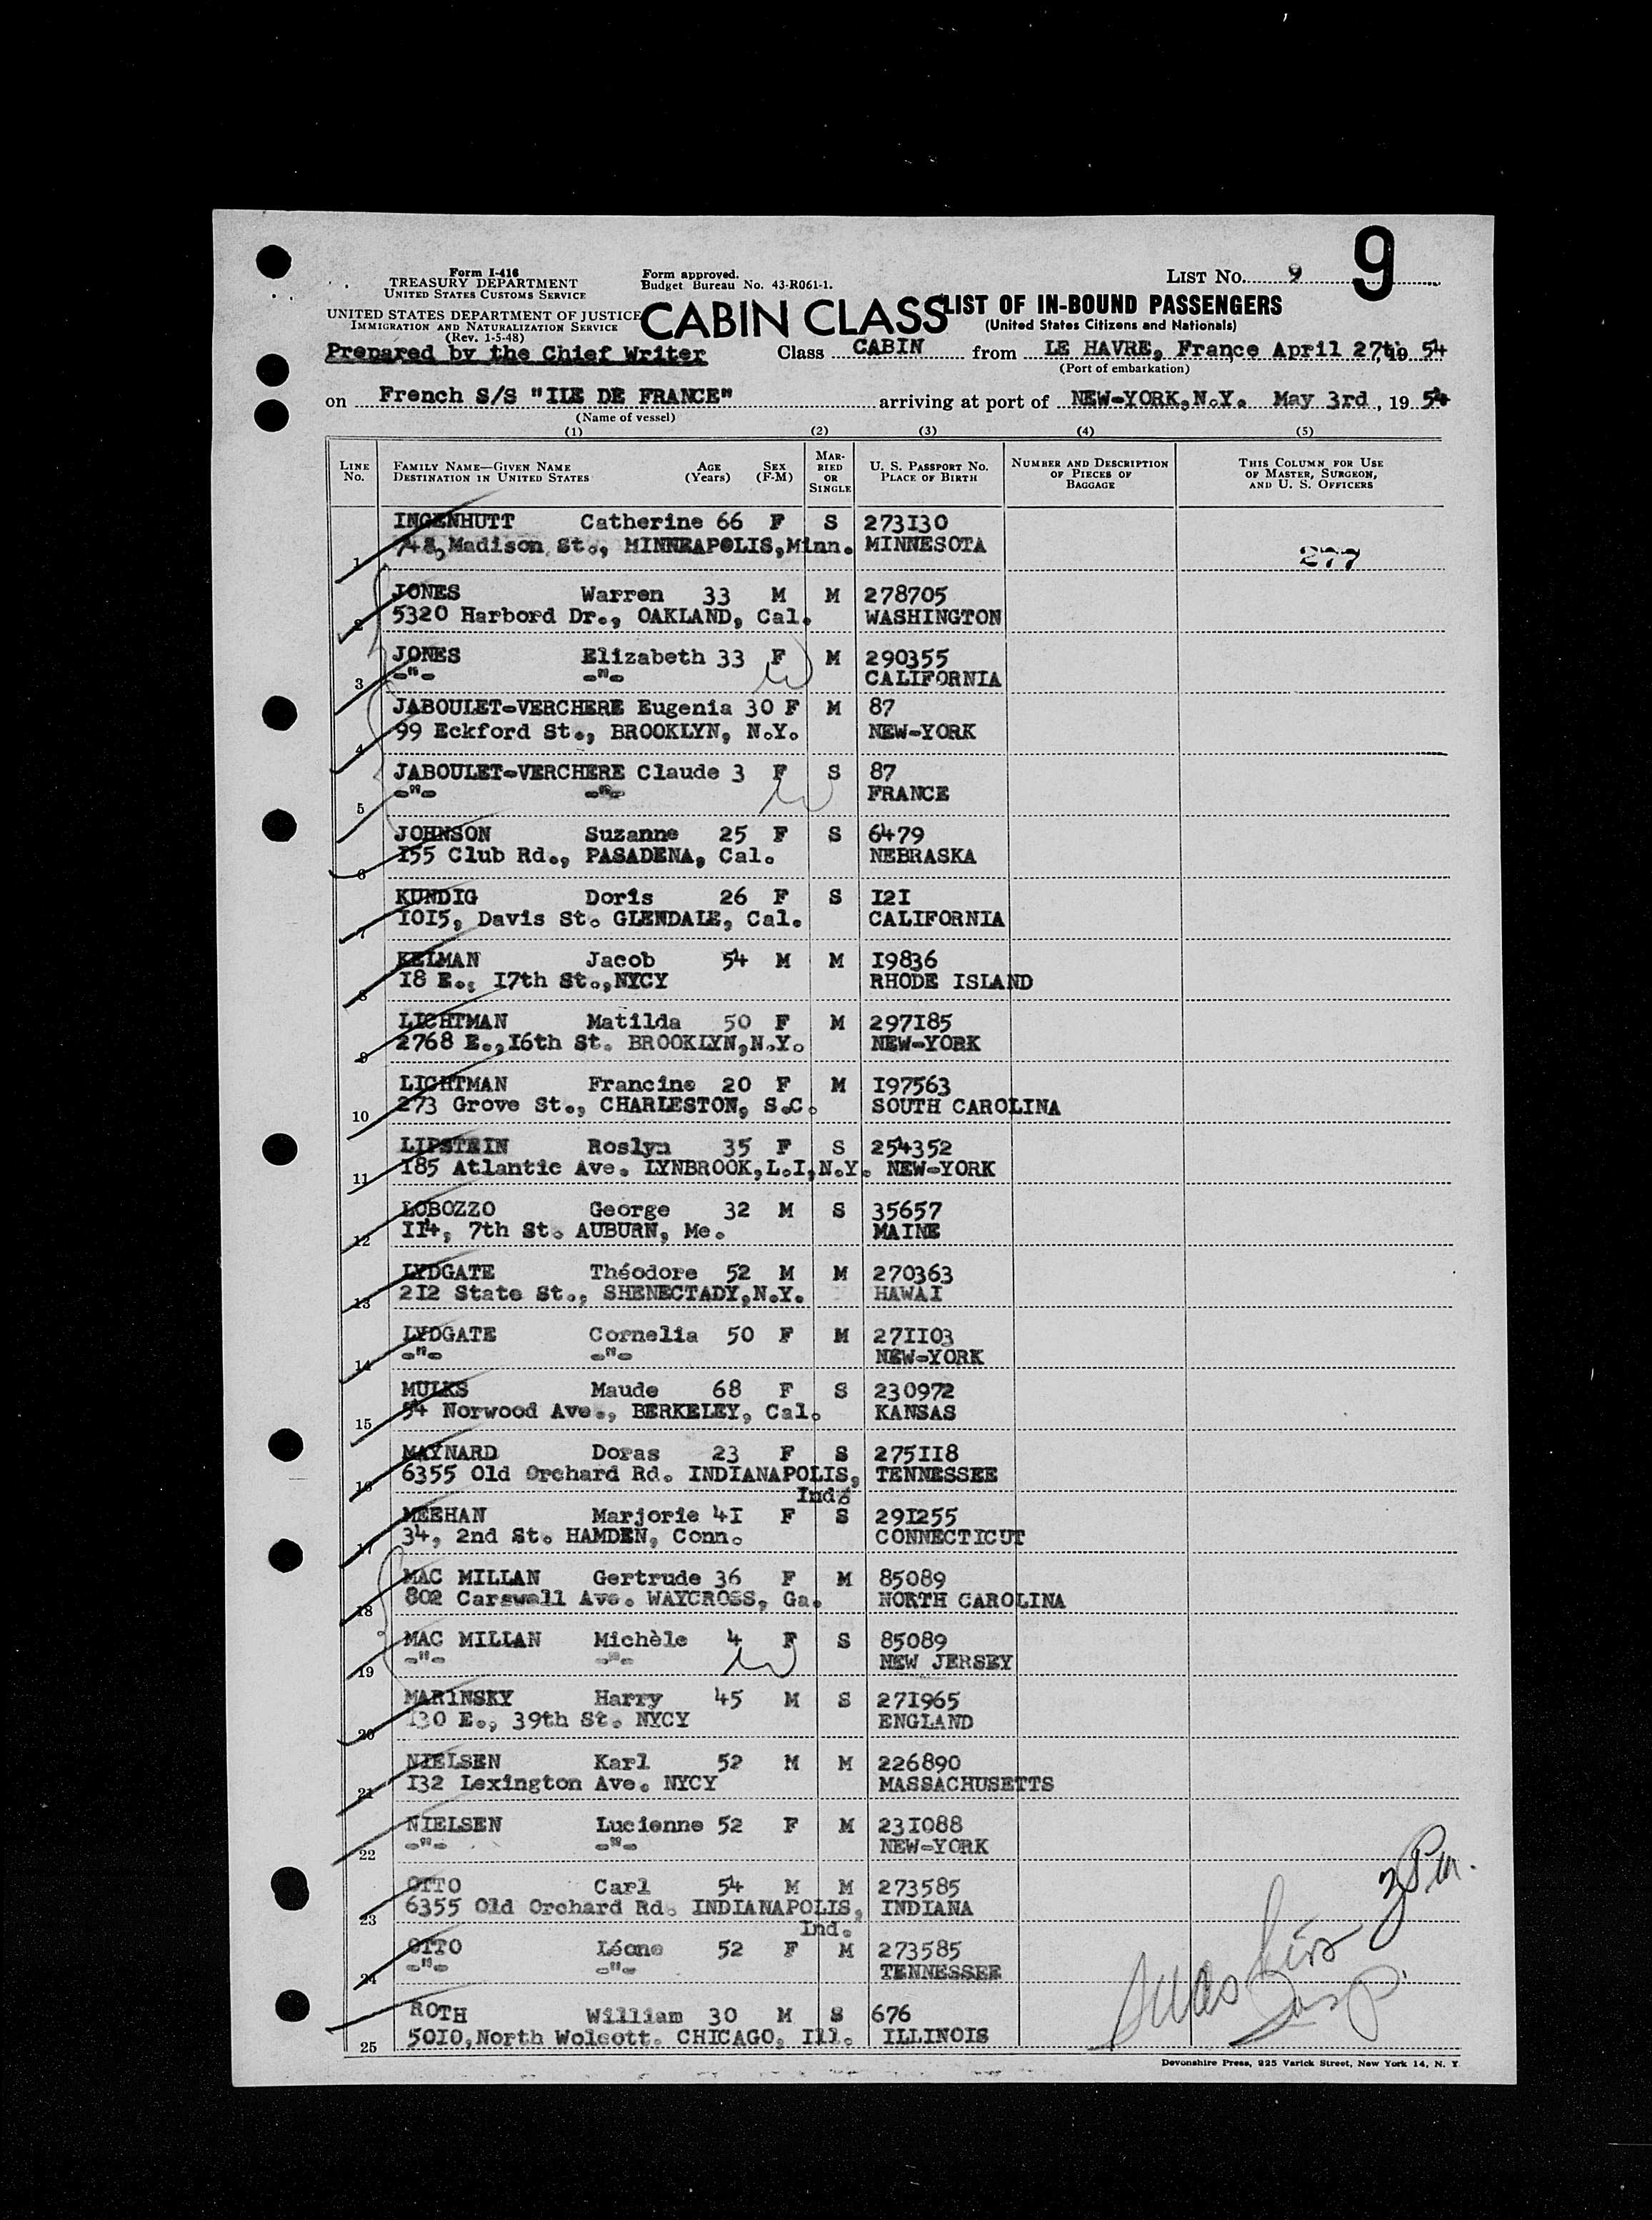 9
Form I-416
TREASURY DEPARTMENT
UNITED STATES CUSTOMS SERVICE
Form approved.
Budget Bureau No. 43-R061-1.
LIST NO. 9
UNITED STATES DEPARTMENT OF JUSTICE
IMMIGRATION AND NATURALIZATION SERVICE
(Rev. 1-5-48)
CABIN CLASS
LIST OF IN-BOUND PASSENGERS
(United States Citizens and Nationals)
Prepared by the Chief Writer
Class CABIN from LE HAVRE, France April 27th, 19 54
(Port of embarkation)
on French S/S "ILE DE FRANCE" arriving at port of NEW-YORK,N.Y. May 3rd, 19 54
(Name of vessel)
(1) (2) (3) (4) (5)
LINE No. FAMILY NAME—GIVEN NAME DESTINATION IN UNITED STATES AGE (Years) SEX (F-M) MARRIED OR SINGLE U. S. PASSPORT NO. PLACE OF BIRTH NUMBER AND DESCRIPTION OF PIECES OF BAGGAGE THIS COLUMN FOR USE OF MASTER, SURGEON, AND U. S. OFFICERS
INGENHUTT Catherine 66 F S 273I30
1 748, Madison St., MINNEAPOLIS,Minn. MINNESOTA 277
JONES Warren 33 M M 278705
2 5320 Harbord Dr., OAKLAND, Cal. WASHINGTON
JONES Elizabeth 33 F M 290355
3 -"- -"- CALIFORNIA
JABOULET-VERCHERE Eugenia 30 F M 87
4 99 Eckford St., BROOKLYN, N.Y. NEW-YORK
JABOULET-VERCHERE Claude 3 F S 87
5 -"- -"- FRANCE
JOHNSON Suzanne 25 F S 6479
6 I55 Club Rd., PASADENA, Cal. NEBRASKA
KUNDIG Doris 26 F S I2I
7 I0I5, Davis St. GLENDALE, Cal. CALIFORNIA
KELMAN Jacob 54 M M I9836
8 I8 E., I7th St.,NYCY RHODE ISLAND
LICHTMAN Matilda 50 F M 297I85
9 2768 E.,I6th St. BROOKLYN,N.Y. NEW-YORK
LICHTMAN Francine 20 F M I97563
10 273 Grove St., CHARLESTON, S.C. SOUTH CAROLINA
LIPSTEIN Roslyn 35 F S 254352
11 I85 Atlantic Ave. LYNBROOK,L.I,N.Y. NEW-YORK
LOBOZZO George 32 M S 35657
12 II4, 7th St. AUBURN, Me. MAINE
LYDGATE Théodore 52 M M 270363
13 2I2 State St., SHENECTADY,N.Y. HAWAI
LYDGATE Cornelia 50 F M 27II03
14 -"- -"- NEW-YORK
MULKS Maude 68 F S 230972
15 54 Norwood Ave., BERKELEY, Cal. KANSAS
MAYNARD Doras 23 F S 275II8
16 6355 Old Orchard Rd. INDIANAPOLIS, TENNESSEE
Ind.
MEEHAN Marjorie 4I F S 29I255
17 34, 2nd St. HAMDEN, Conn. CONNECTICUT
MAC MILLAN Gertrude 36 F M 85089
18 802 Carswall Ave. WAYCROSS, Ga. NORTH CAROLINA
MAC MILLAN Michèle 4 F S 85089
19 -"- -"- NEW JERSEY
MARINSKY Harry 45 M S 27I965
20 I30 E., 39th St. NYCY ENGLAND
NIELSEN Karl 52 M M 226890
21 I32 Lexington Ave. NYCY MASSACHUSETTS
NIELSEN Lucienne 52 F M 23I088
22 -"- -"- NEW-YORK
OTTO Carl 54 M M 273585
23 6355 Old Orchard Rd. INDIANAPOLIS, INDIANA
Ind.
OTTO Léone 52 F M 273585
24 -"- -"- TENNESSEE
ROTH William 30 M S 676
25 50I0,North Wolcott. CHICAGO, Ill. ILLINOIS
Devonshire Press, 225 Varick Street, New York 14, N. Y.